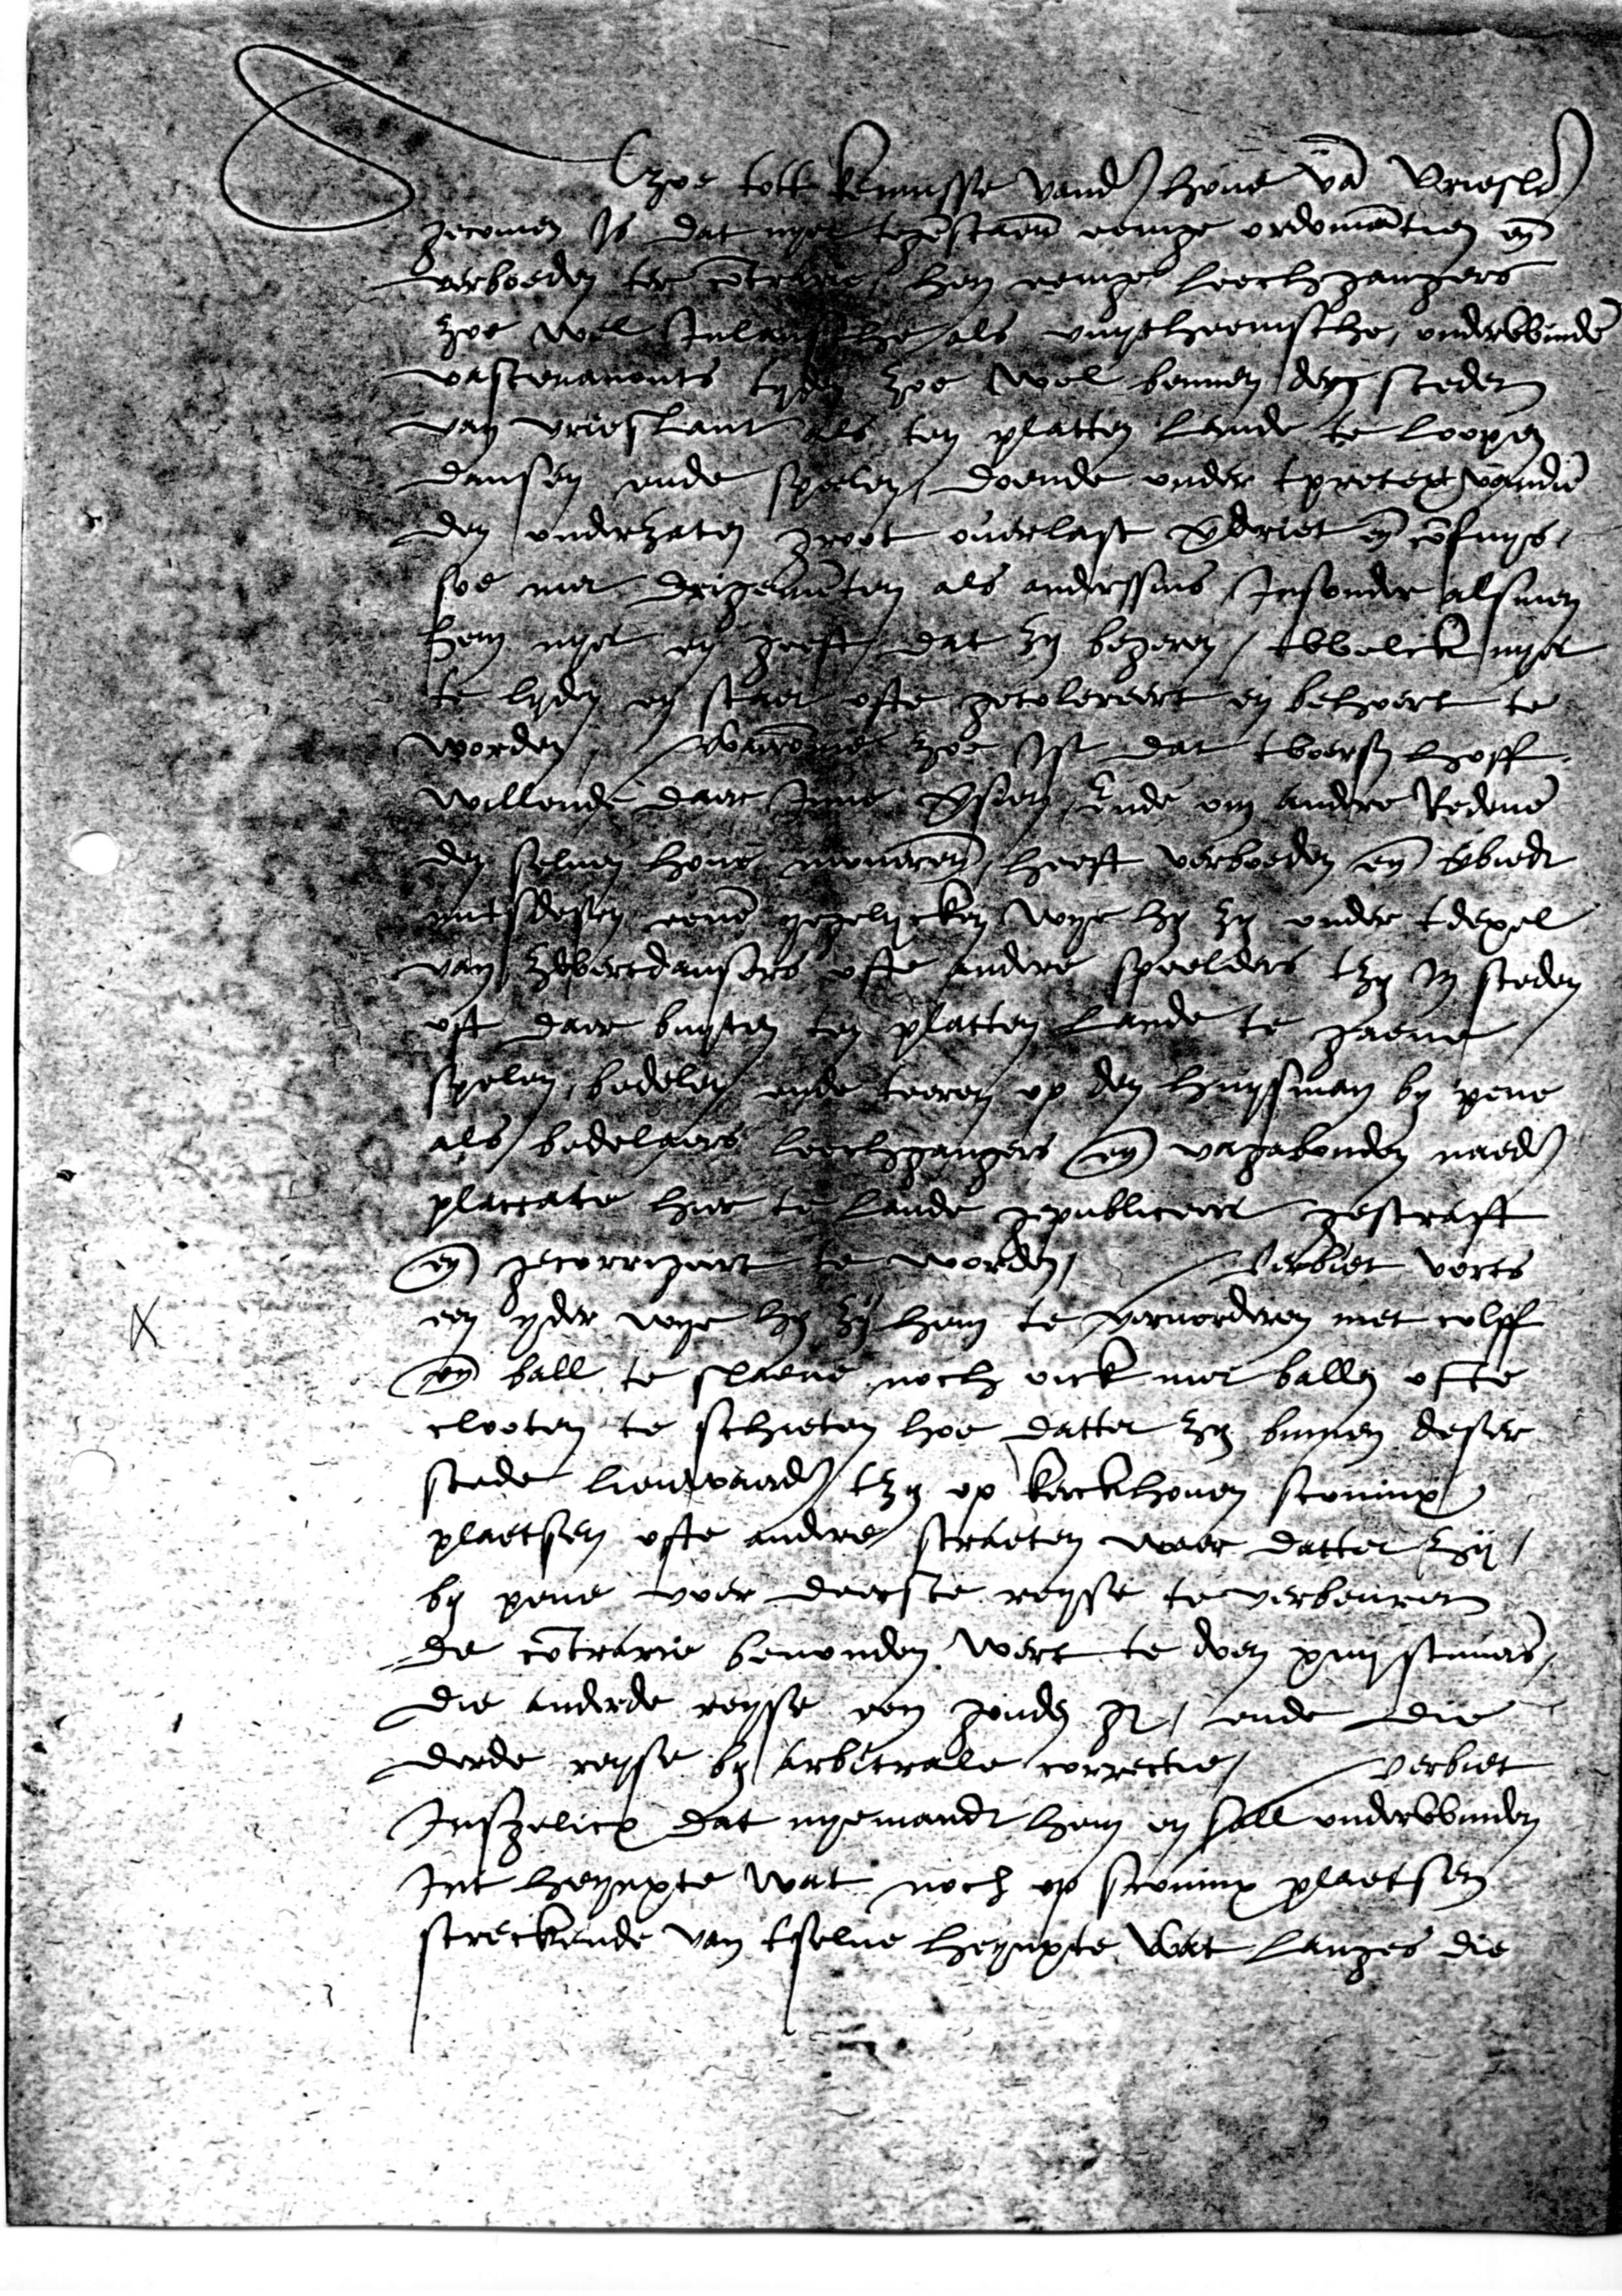 Zoe tott kennisse vand hove va Vrieslt
gecomen Is dat nyet tegestaen eenige ordonnatien en
verboeden ter cotrarie, hen eenige leechgangers
zoe wel Inlantsche als vuytheemsche, onderwinde
vastenavonts tyden zoe wel bynnen den steden
van vrieslant als ten platten lande te loopen
dansen ende speelen, doende onder tpretext vandie
den onderzaten groot overlast verdriet en cofuys,
soe met dreigementen als anderssins Insonder alsmen
hem nyet en geeft dat zy begeren, twelck nyet
te lyden en staet ofte getolereert en behoert te
worden, Waerome zoe Ist dat tvoersz hoff
willende daer Inne versien, Ende om andere Redene
den selven hove moverende, heeft verboeden en verbiedt
mitsdesen eene yegelycken wye hy zy onder tdexel
van zweertdansers ofte andere speelders tzy In steden
oft daer buyten ten platten lande te gaene
spelen, bedelen ende teeren op den huysman by pene
als bedelaers leechgangers en vagabonden naed
placcate hier te lande gepubliceert gestraft
en gecorrigeert te worden, Verbiet vorts
een yder wye hy zy hem te vervorderen met colff
en ball te slaene noch oick met ballen ofte
clooten te schieten hoe datter zy binnen deser
stede lieuwaerd tzy op kerckhoven sconinx
plaetsen ofte andere straeten waer datter zy,
by pene voer deerste reyse te verbeuren
de cotrarie bevonden wert te doen xiiij stuvers,
die anderde reyse een gouden gl, ende die
derde reyse by arbitrale correctie, Verbiet
Insgelicx dat nyemandt hem en sall onderwinden
Int heynxte wat noch op sconinx plaetsen
streckende van tselve heynxte wat langes die